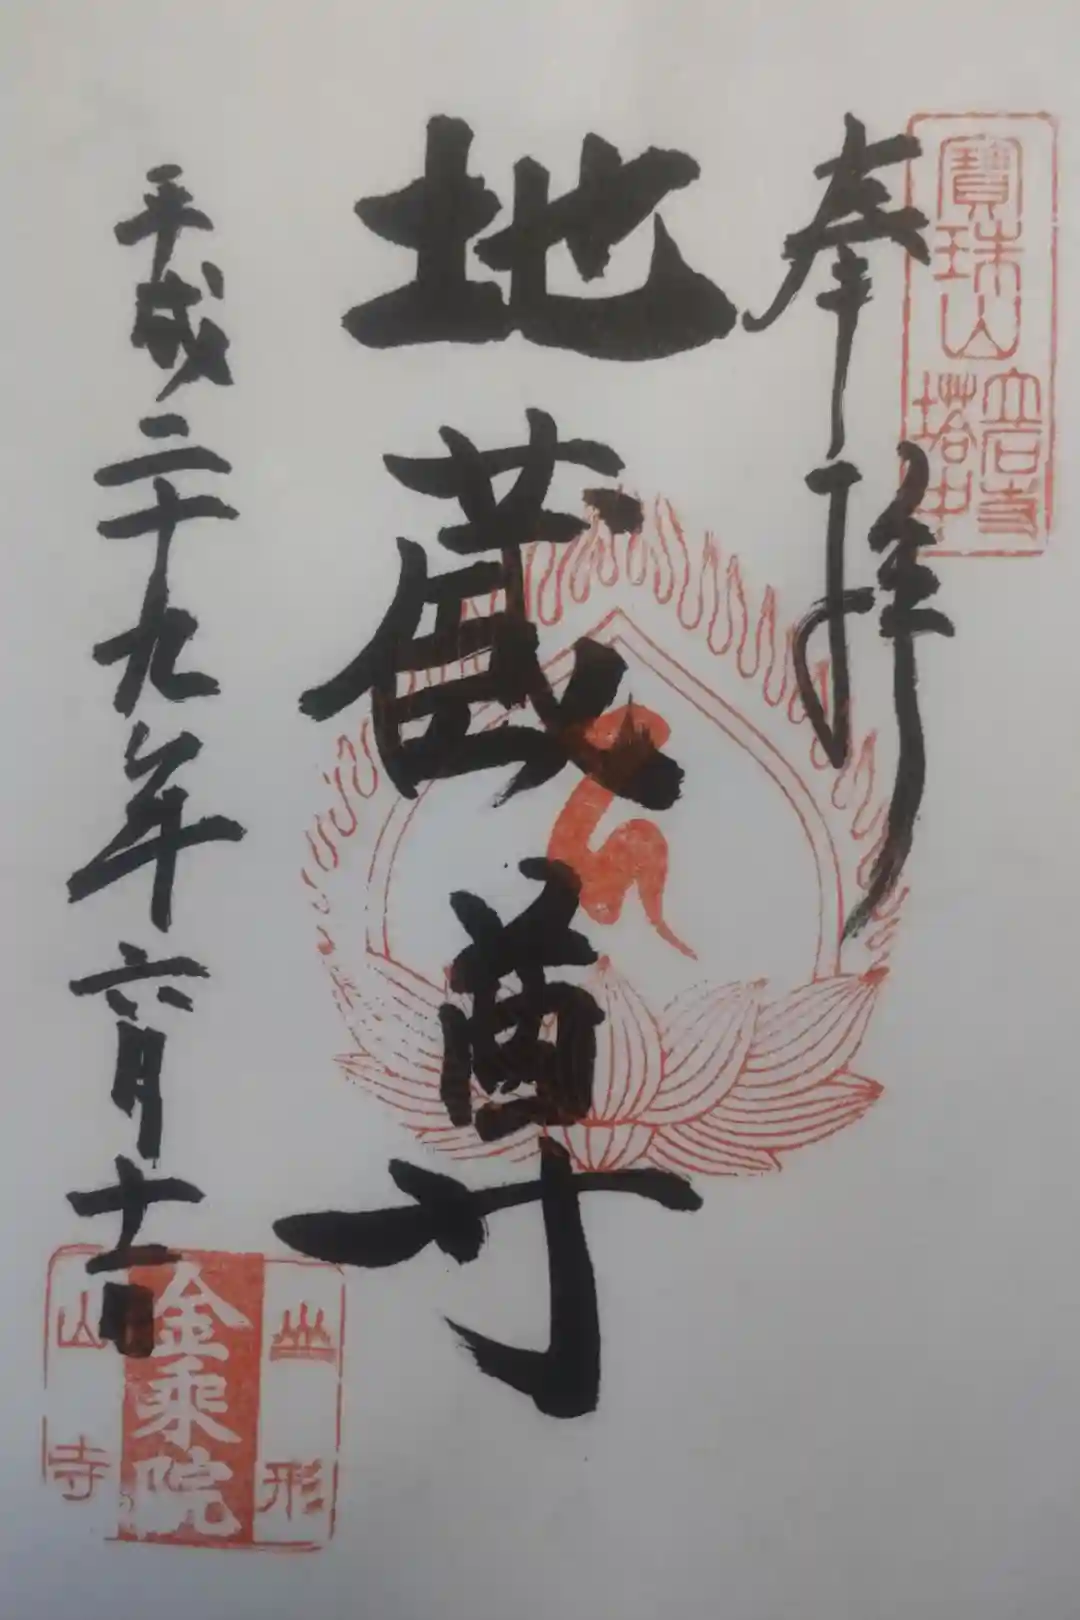 寶珠山
立石寺
塔中
奉拝
地蔵尊
平成二十九年六月十一日
山形
金乗院
山寺